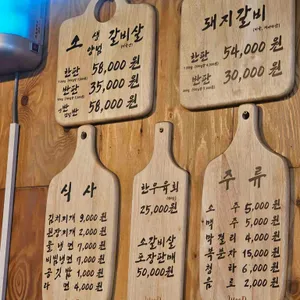 소 생 갈비살
양념
한판 58,000 원
반판 35,000 원
한판 58,000 원
돼지갈비
한판 54,000 원
반판 30,000 원
식 사
김치찌개 9,000원
된장찌개 2,000원
물냉면 7,000원
비빔냉면 7,000원
공깃밥 1,000원
라면 4,000원
한우육회
25,000원
소갈비살
포장판매
50,000원
주 류
소주 5,000원
맥주 5,000원
막걸리 4,000원
복분자 15,000원
청하 6,000원
음료 2,000원